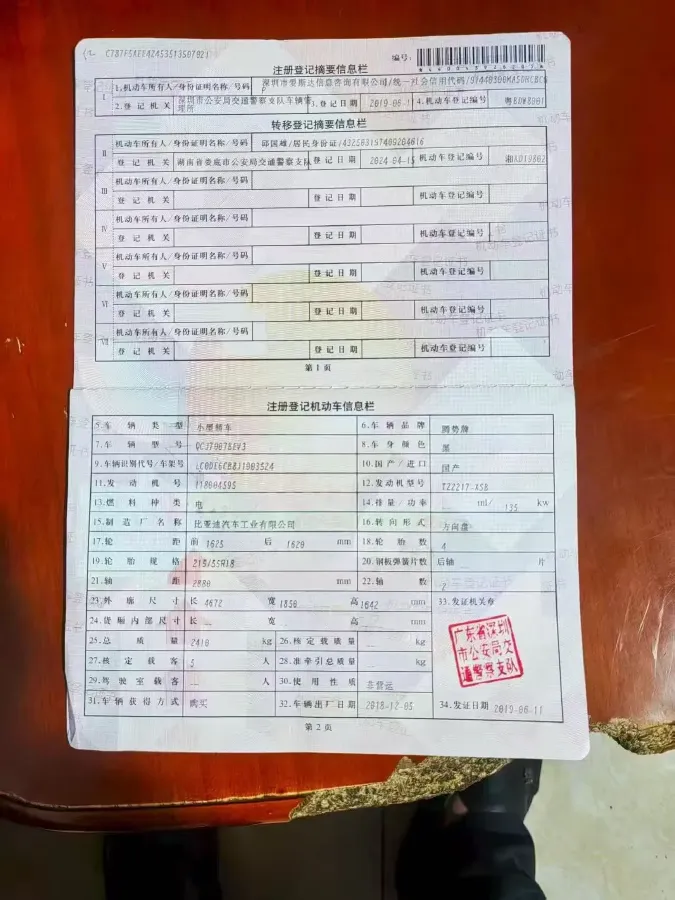 编号:
注册登记摘要信息栏
I 1.机动车所有人/身份证明名称/号码 深圳市爱斯达信息咨询有限公司/统一社会信用代码/
2.登记机关 深圳市公安局交通警察支队车辆管理所 3.登记日期 2019-06-11 4.机动车登记编号
转移登记摘要信息栏
II 机动车所有人/身份证明名称/号码 邱国雄/居民身份证/
登记机关 湖南省娄底市公安局交通警察支队 登记日期 2024-04-15 机动车登记编号
III 机动车所有人/身份证明名称/号码
登记机关 登记日期 机动车登记编号
IV 机动车所有人/身份证明名称/号码
登记机关 登记日期 机动车登记编号
V 机动车所有人/身份证明名称/号码
登记机关 登记日期 机动车登记编号
VI 机动车所有人/身份证明名称/号码
登记机关 登记日期 机动车登记编号
VII 机动车所有人/身份证明名称/号码
登记机关 登记日期 机动车登记编号
第1页
注册登记机动车信息栏
5.车辆类型 小型轿车 6.车辆品牌 腾势牌
7.车辆型号 8.车身颜色 黑
9.车辆识别代号/车架号 10.国产/进口 国产
11.发动机号 118004595 12.发动机型号 TZ221T-XSB
13.燃料种类 电 14.排量/功率 -- ml/ 135 kw
15.制造厂名称 比亚迪汽车工业有限公司 16.转向形式 方向盘
17.轮距 前 1625 后 1620 mm 18.轮胎数 4
19.轮胎规格 215/55R18 20.钢板弹簧片数 后轴 -- 片
21.轴距 2880 mm 22.轴数 2
23.外廓尺寸 长 4672 宽 1850 高 1642 mm 33.发证机关章
24.货厢内部尺寸 长 -- 宽 -- 高 -- mm
25.总质量 2410 kg 26.核定载质量 -- kg
27.核定载客 5 人 28.准牵引总质量 -- kg
29.驾驶室载客 -- 人 30.使用性质 非营运
广东省深圳
市公安局交
通警察支队
31.车辆获得方式 购买 32.车辆出厂日期 2018-12-05 34.发证日期 2019-06-11
第2页